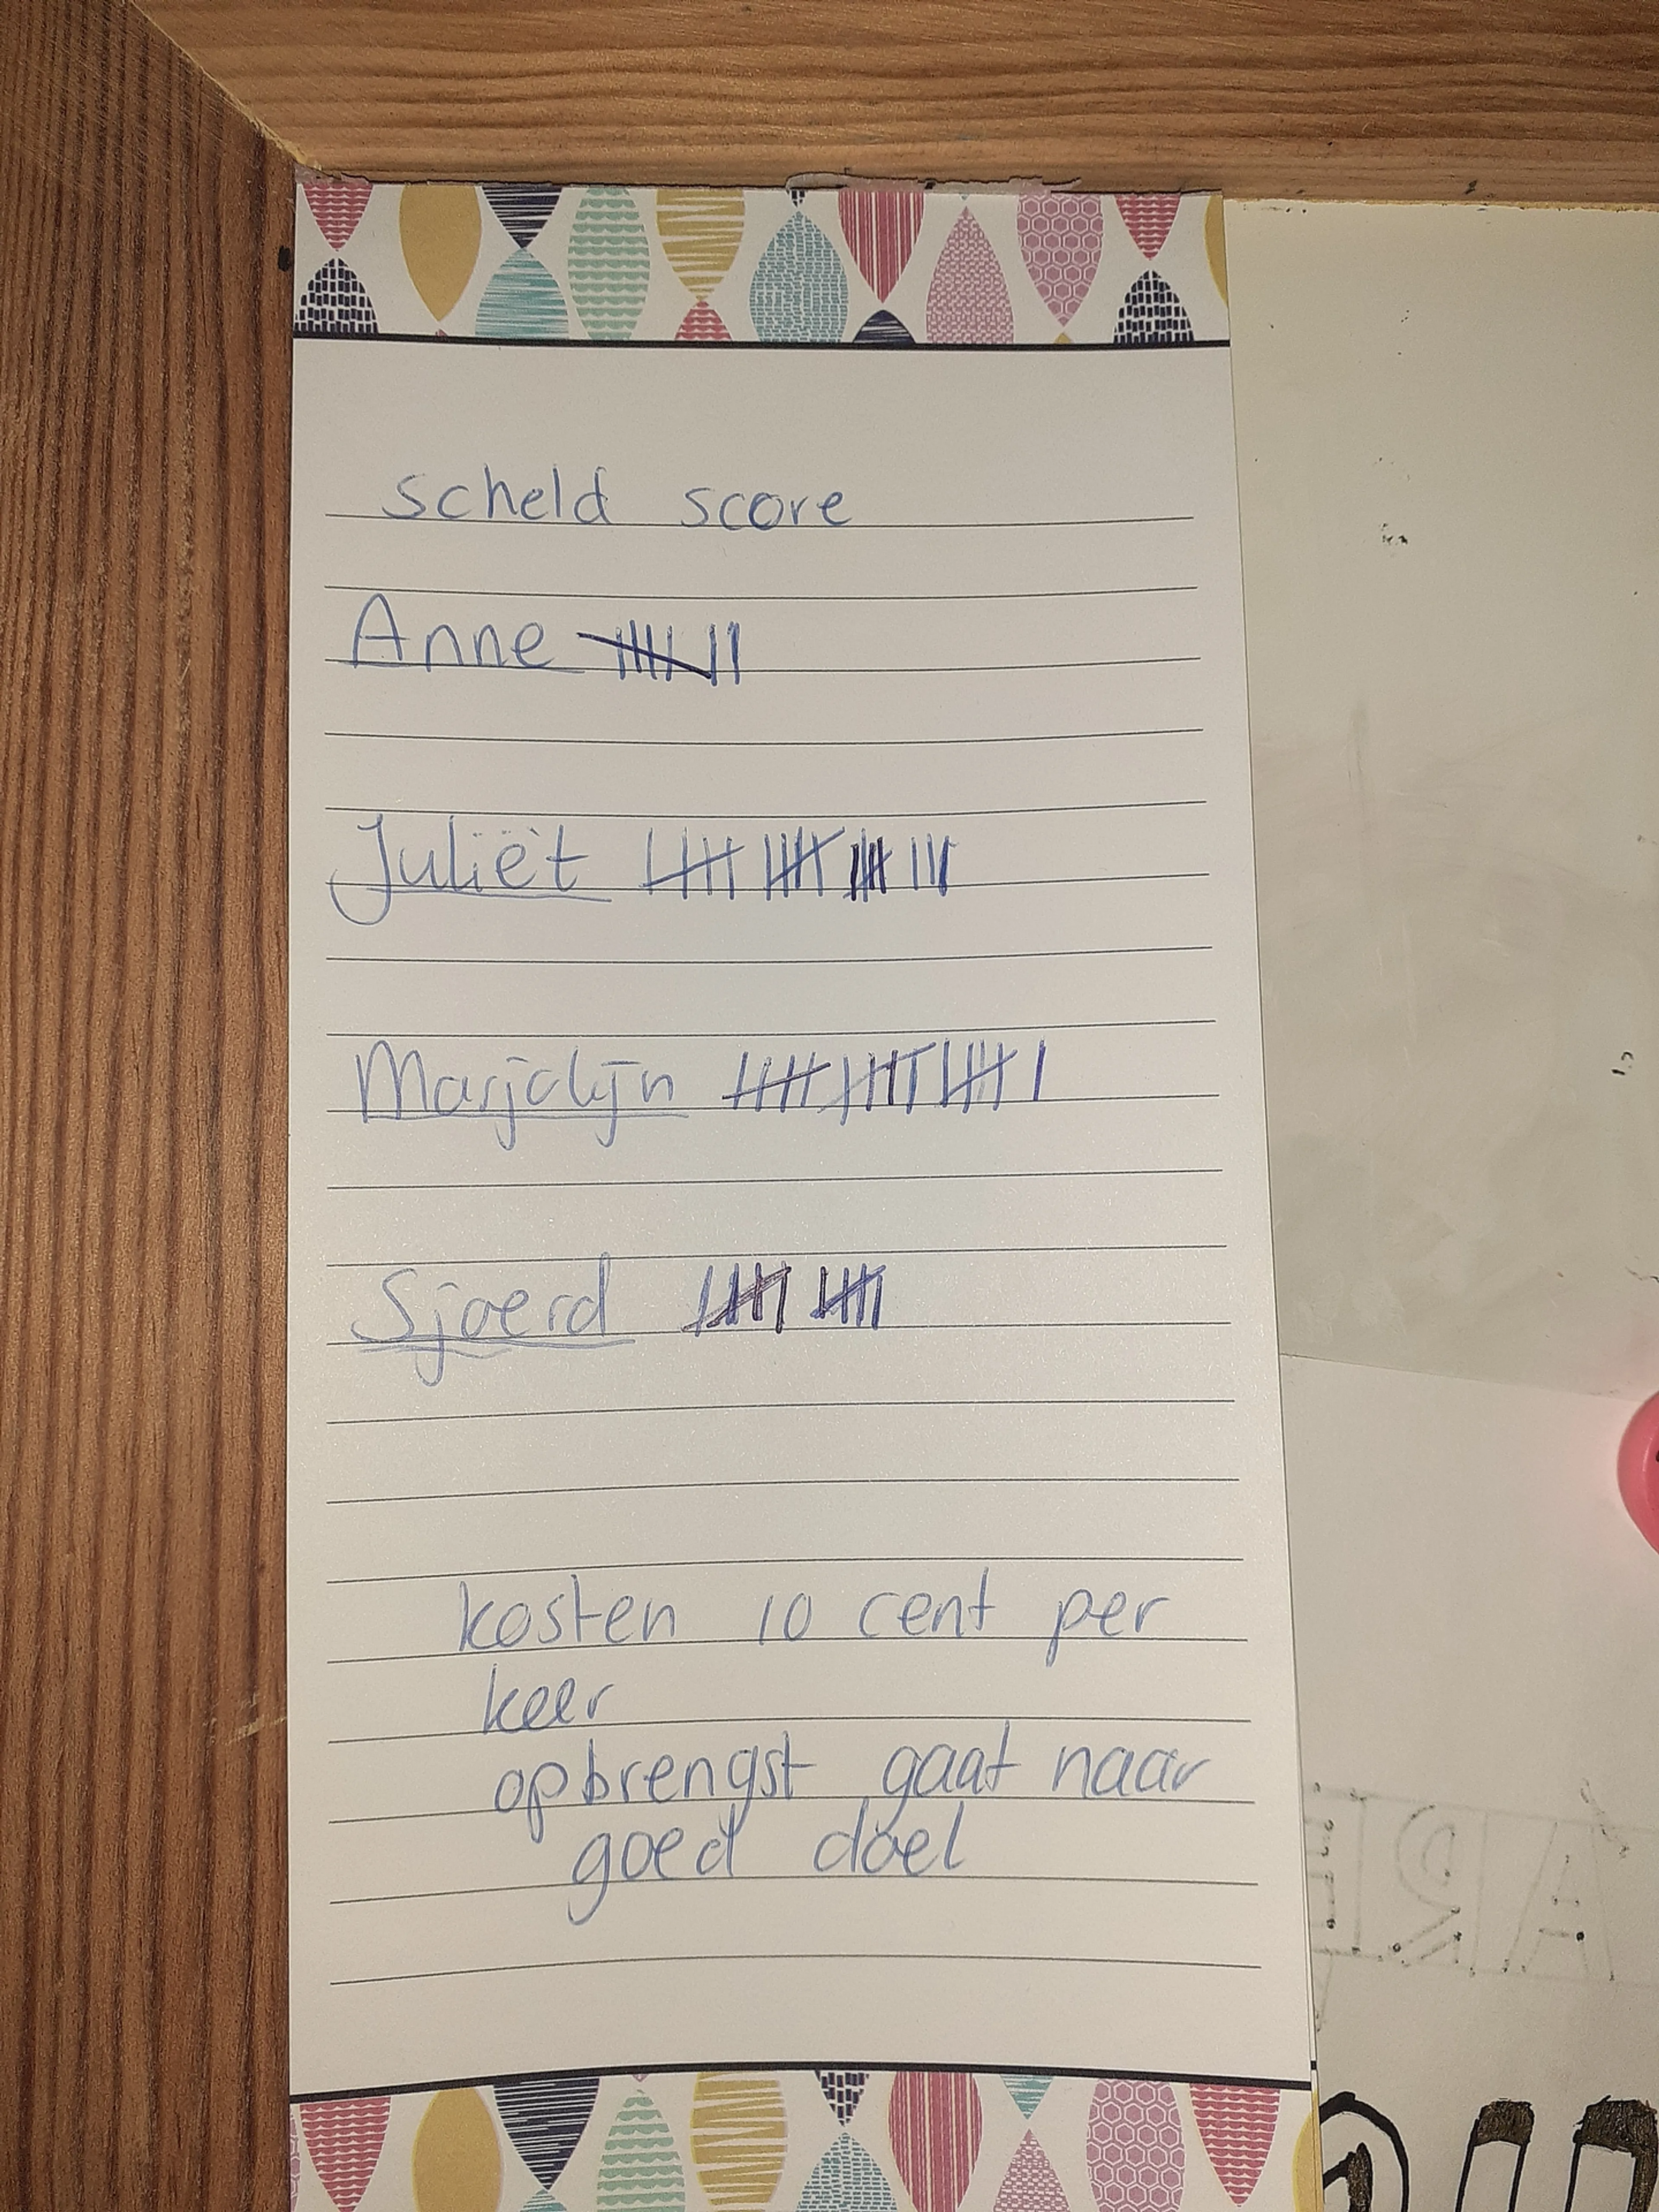 scheld score
Anne
Juliët
Marjolijn
Sjoerd
kosten 10 cent per
keer
opbrengst gaat naar
goed doel